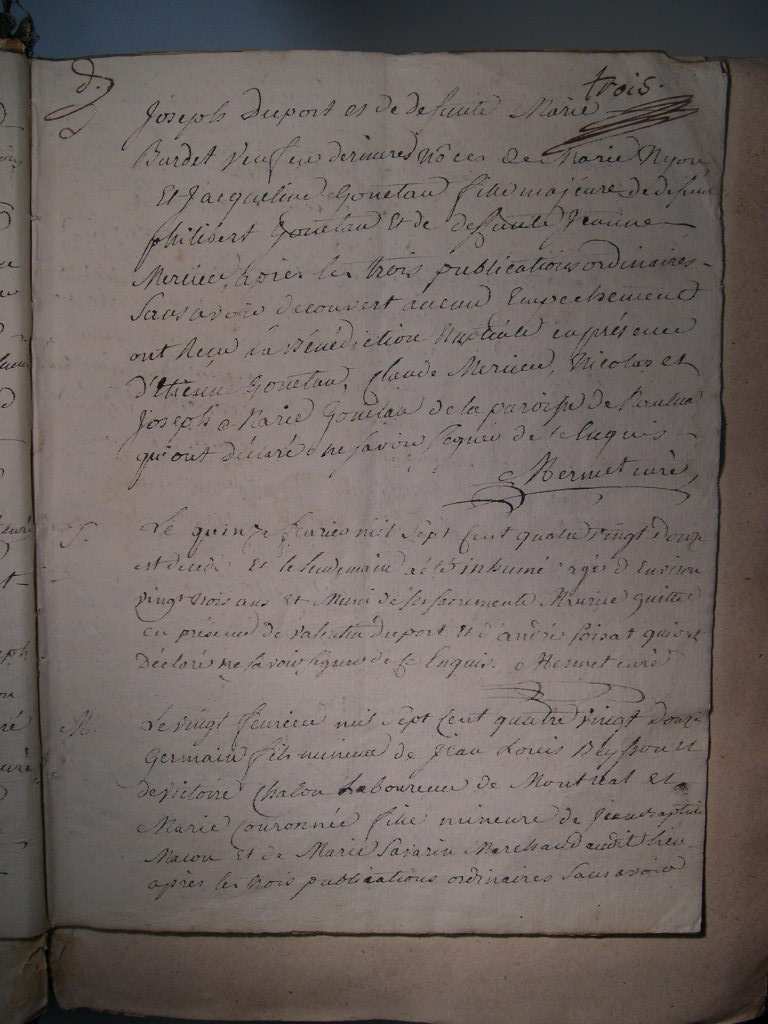 trois.
Joseph Duport et de defunte Marie
Burdet veuf en dernieres Noces de Marie Nyon
Et Jacqueline Gonetan fille majeure de defunt
philibert Gonetan Et de deffunte Jeanne
Mercier, après les trois publications ordinaires
Sans avoir decouvert aucun Empechement
ont Reçu la Bénédiction Nuptiale en présence
d'Etienne Gonetan, Claude Mercier, Nicolas et
Joseph Marie Gonetan de la paroisse de
qui ont déclaré ne savoir signer de ce Enquis
Mermet curé,
S.
Le quinze fevrier mil sept Cent quatre vingt douze
est decedé Et le lendemain a été inhumé agé d'Environ
vingt trois ans Et Muni de ses sacrements Maurice
en présence de Valentin Duport Et d'andré qui ont
Déclaré ne savoir signer de ce Enquis. Mermet curé
M.
Le vingt fevrier mil sept Cent quatre vingt douze
Germain fils mineur de Jean Louis et
de victoire Chalon Laboureur de Montreal et
Marie Couronnée fille mineure de Jean Baptiste
Macon Et de Marie Savarin Marchand audit lieu
après les trois publications ordinaires Sans avoir